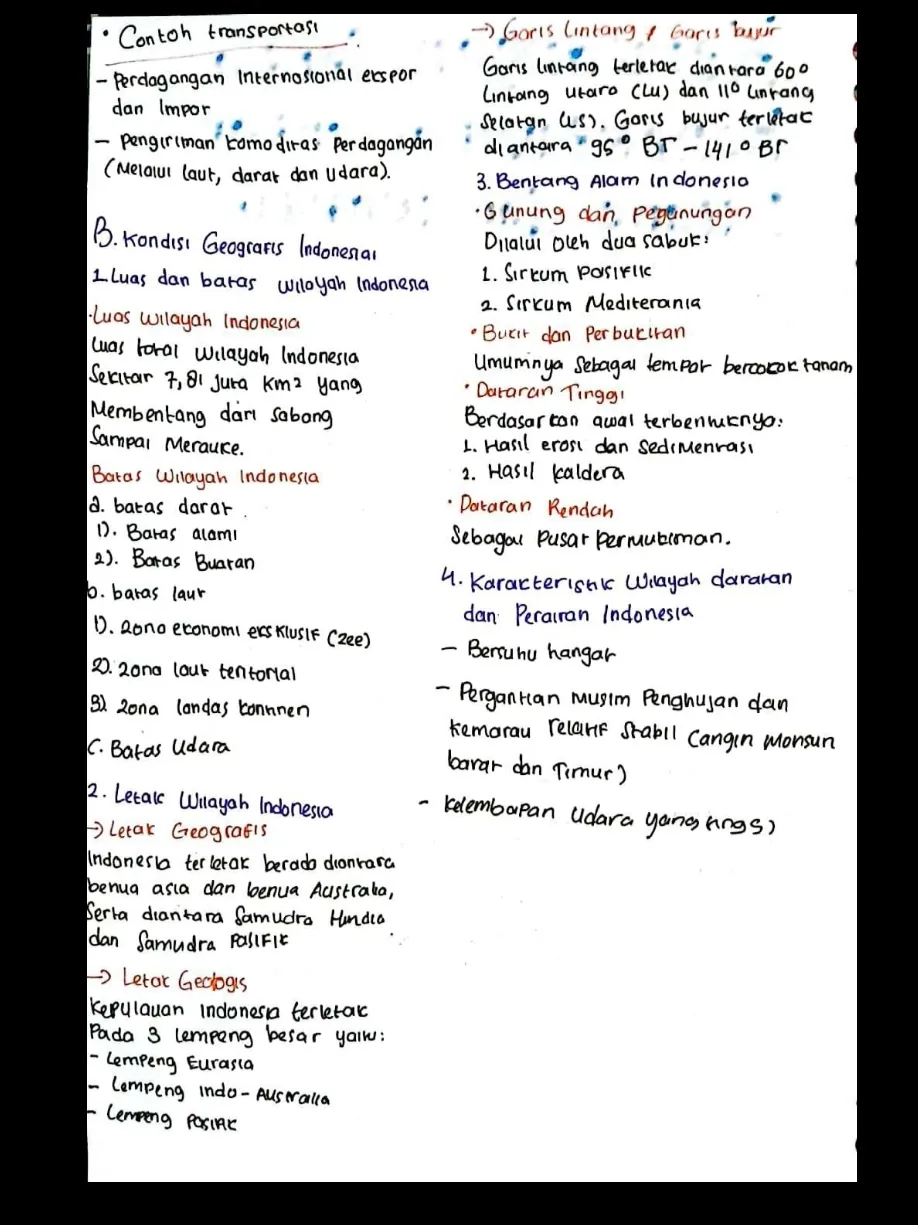 • Contoh transportasi
- Perdagangan Internasional ekspor
dan Impor
- Pengiriman komoditas Perdagangan
(Melalui laut, darat dan Udara).
B. Kondisi Geografis Indonesiai
1. Luas dan batas wilayah Indonesia
• Luas wilayah Indonesia
Luas total wilayah Indonesia
Sekitar 7,81 juta Km2 yang
Membentang dari Sabang
Sampai Merauke.
Batas Wilayah Indonesia
a. batas darat
1). Batas alami
2). Batas Buatan
b. batas laut
1). zona ekonomi eksklusif (zee)
2). zona laut teritorial
3). zona landas kontinen
C. Batas Udara
2. Letak Wilayah Indonesia
→ Letak Geografis
Indonesia terletak berada diantara
benua asia dan benua Australia,
Serta diantara Samudra Hindia
dan Samudra Pasifik
→ Letak Geologis
Kepulauan Indonesia terletak
Pada 3 lempeng besar yaitu:
- Lempeng Eurasia
- Lempeng Indo-Australia
- Lempeng Pasifik
→ Garis Lintang & Garis bujur
Garis lintang terletak diantara 60°
Lintang utara (LU) dan 11° Lintang
Selatan (LS). Garis bujur terletak
diantara 95° BT - 141° BT
3. Bentang Alam Indonesia
• Gunung dan Pegunungan
Dilalui Oleh dua sabuk:
1. Sirkum Pasifik
2. Sirkum Mediterania
• Bukit dan Perbukitan
Umumnya Sebagai tempat bercocok tanam
• Dataran Tinggi
Berdasarkan awal terbentuknya:
1. Hasil erosi dan Sedimentasi
2. Hasil kaldera
• Dataran Rendah
Sebagai Pusat Permukiman.
4. Karakteristik Wilayah daratan
dan Perairan Indonesia
- Bersuhu hangat
- Pergantian Musim Penghujan dan
Kemarau relatif Stabil (angin Monsun
barat dan Timur)
- Kelembapan Udara yang tinggi